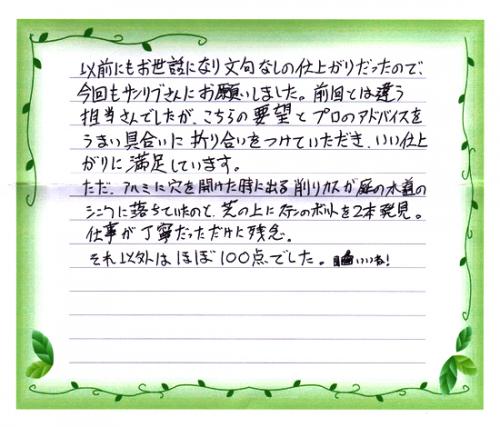 以前にもお世話になり文句なしの仕上がりだったので、
今回もサンリブさんにお願いしました。前回とは違う
担当さんでしたが、こちらの要望とプロのアドバイスを
うまい具合いに折り合いをつけていただき、いい仕上
がりに満足しています。
ただ、アルミに穴を開けた時に出る削りカスが庭の水道の
シンクに落ちていたのと、芝の上にステンのボルトを2本発見。
仕事が丁寧だっただけに残念。
それ以外はほぼ100点でした。いいね!